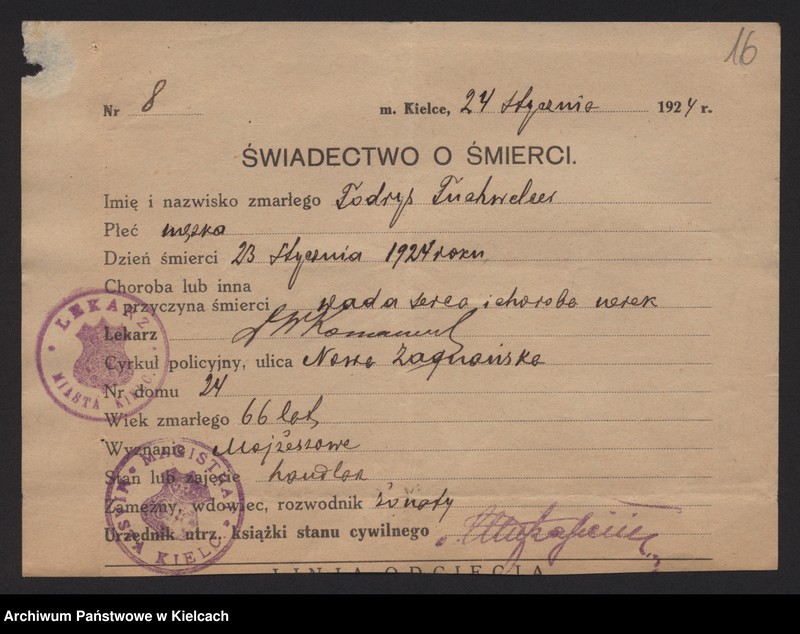 16
Nr 8 m. Kielce, 24 stycznia 1924 r.
ŚWIADECTWO O ŚMIERCI.
Imię i nazwisko zmarłego Fodrys
Płeć męska
Dzień śmierci 23 stycznia 1924 roku
Choroba lub inna
przyczyna śmierci wada serca i choroba nerek
Lekarz
Cyrkuł policyjny, ulica Nowo Zagnańska
Nr domu 24
Wiek zmarłego 66 lat
Wyznanie Mojżeszowe
Stan lub zajęcie handlarz
Zamężny, wdowiec, rozwodnik żonaty
Urzędnik utrz. książki stanu cywilnego
LINJA ODCIĘCIA
LEKARZ MIASTA KIELC
MAGISTRAT MIASTA KIELC
Archiwum Państwowe w Kielcach